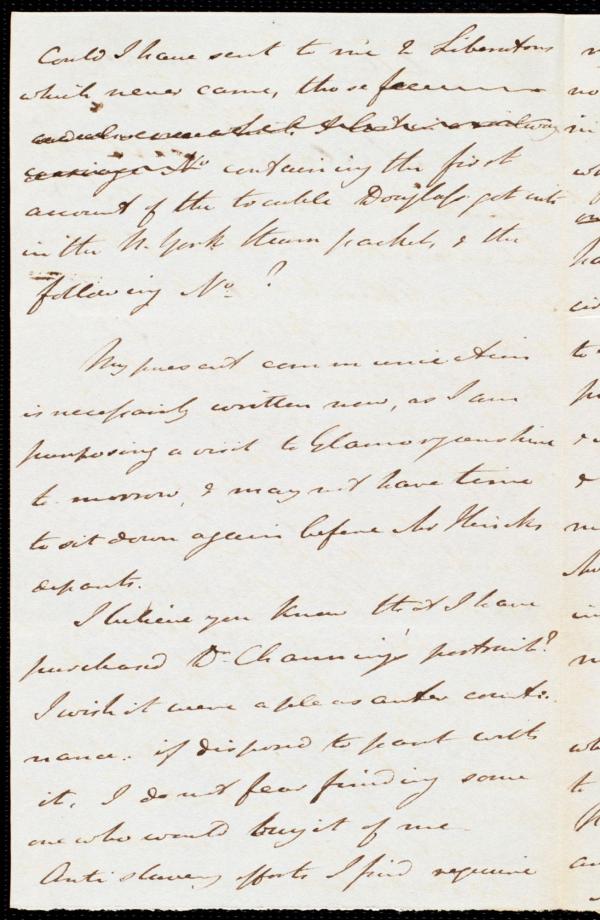 Could I have sent to me 2 Liberators
which never came, those
No containing the first
account of the trouble Douglass got into
in the N. York steam packet, & the
following No. ?
My present communication
is necessarily written now, as I am
purposing a visit to Glamorganshire
to morrow, & may not have time
to sit down again before Mr Hincks
departs.
I believe you know that I have
purchased Dr. Channing's portrait?
I wish it were a pleasanter counte-
nance. if disposed to part with
it, I do not fear finding some
one who would buy it of me
Anti slavery efforts I find require